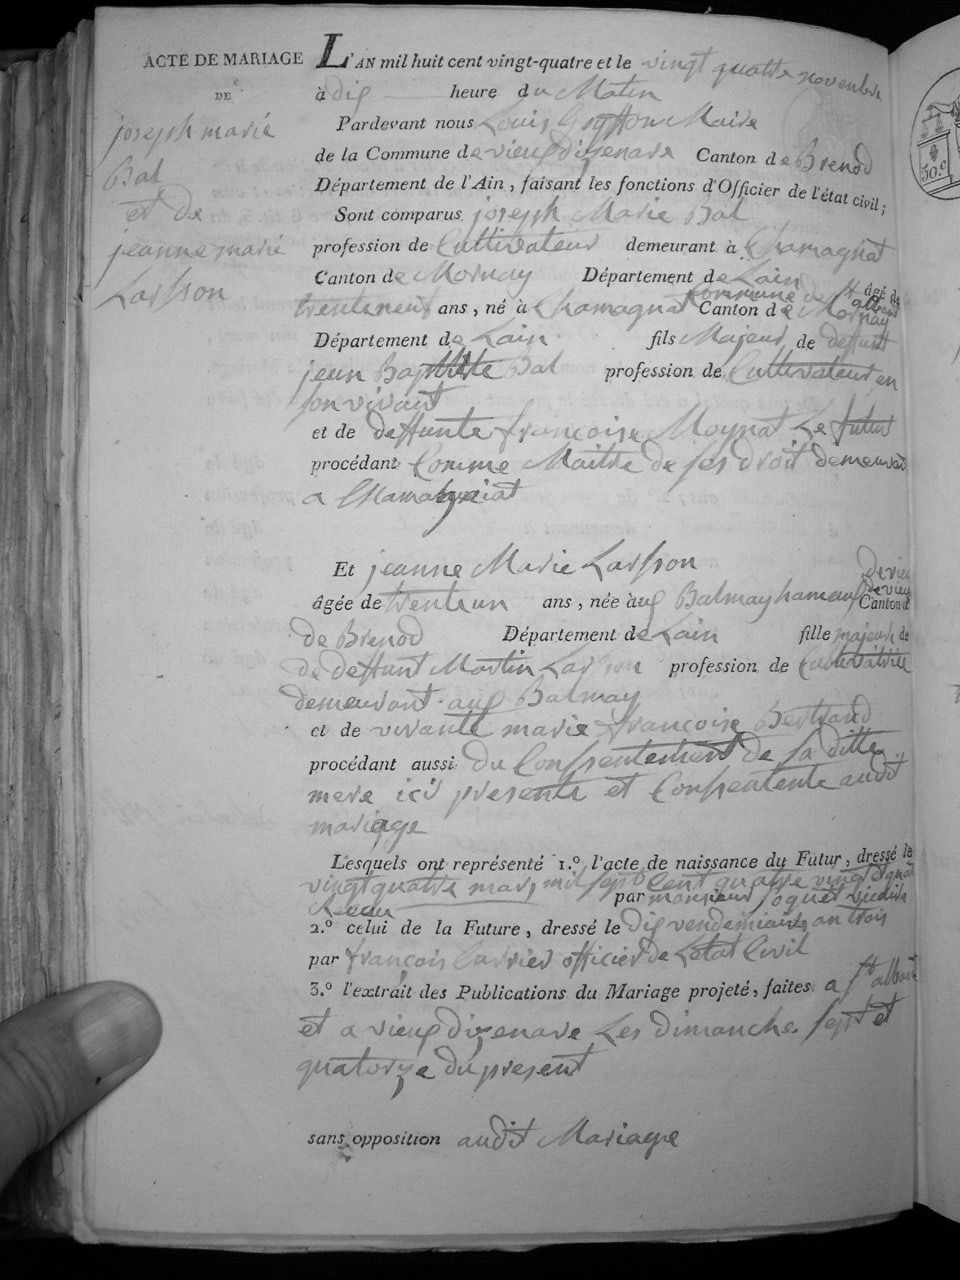 ACTE DE MARIAGE
DE
joseph marie
Bal
et de
jeanne marie
Larsson
L'AN mil huit cent vingt-quatre et le vingt quatre novembre
à dix heure du Matin
Pardevant nous Louis Maire
de la Commune de vieux dizenave Canton de Brenod
Département de l'Ain, faisant les fonctions d'Officier de l'état civil;
Sont comparus joseph Marie Bal
profession de Cultivateur demeurant à Chamagnat
Canton de Mornay Département de Lain âgé de
trenteneuf ans, né à Chamagnat commune de St alband Canton de Mornay
Département de Lain fils Majeur de deffunt
jean Baptiste Bal profession de Cultivateur en
son vivant
et de deffunte françoise Moynat Le futur
procédant Comme Maitre de ses droit demeurant
a Chamagniat
Et jeanne Marie Larsson
âgée de trenteun ans, née aux Balmay hameau de vieu Canton
de Brenod Département de Lain fille majeure de
de deffunt Martin Larsson profession de Cultivatrice
demeurant aux Balmay
et de vivante marie françoise Bertrand
procédant aussi du Consentement de sa ditte
mere ici presente et Consentente audit
mariage
Lesquels ont représenté 1.º l'acte de naissance du Futur, dressé le
vingtquatre mars mil sept Cent quatre vingt quat
par monsieur joquet vicaire
2.º celui de la Future, dressé le dix vendemiaire an trois
par françois Carrier officier de Letat Civil
3.º l'extrait des Publications du Mariage projeté, faites a St alband
et a vieux dizenave Les dimanche sept et
quatorze du present
sans opposition audit Mariage
30.c